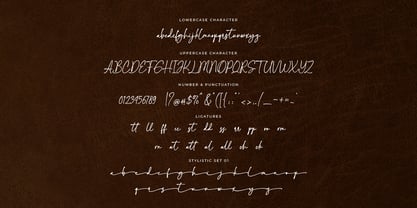 LOWERCASE CHARACTER
abcdefghijklmnopqrstuvwxyz
UPPERCASE CHARACTER
ABCDEFGHIJKLMNOPQRSTUVWXYZ
NUMBER & PUNCTUATION
0123456789
LIGATURES
tt ll ff ee st dd ss rr pp
STYLISTIC SET 01
abcdefghijklmnop
qrstuvwxyz